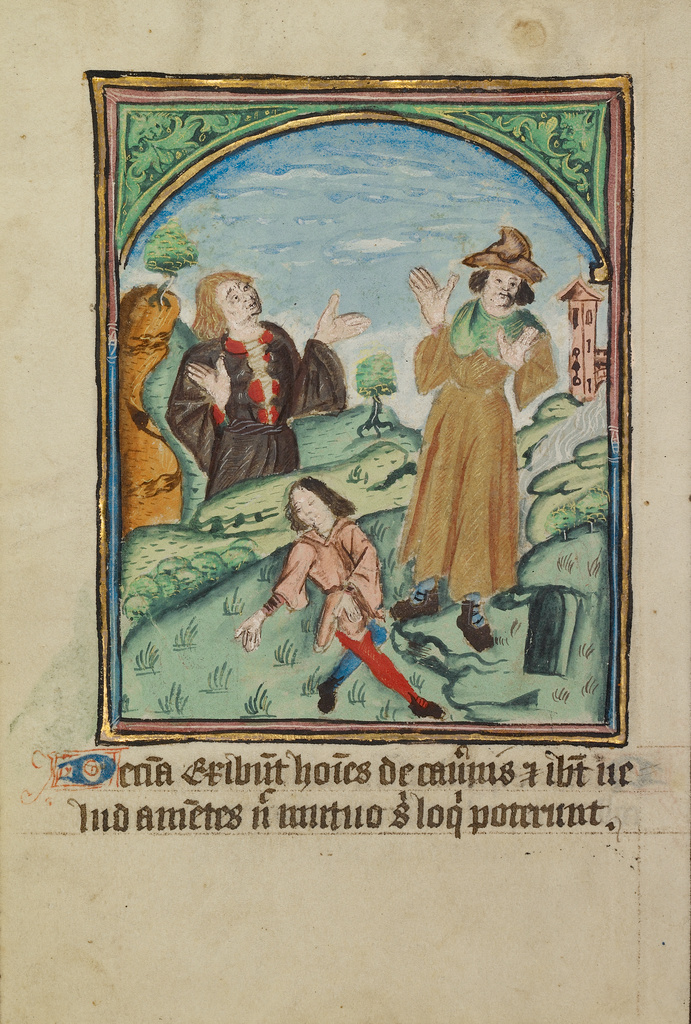 Decia exibūt hoīes de cauʳnis ⁊ ibūt ue
lud amētes n̄ mutuo s͛ loqͥ poterunt.